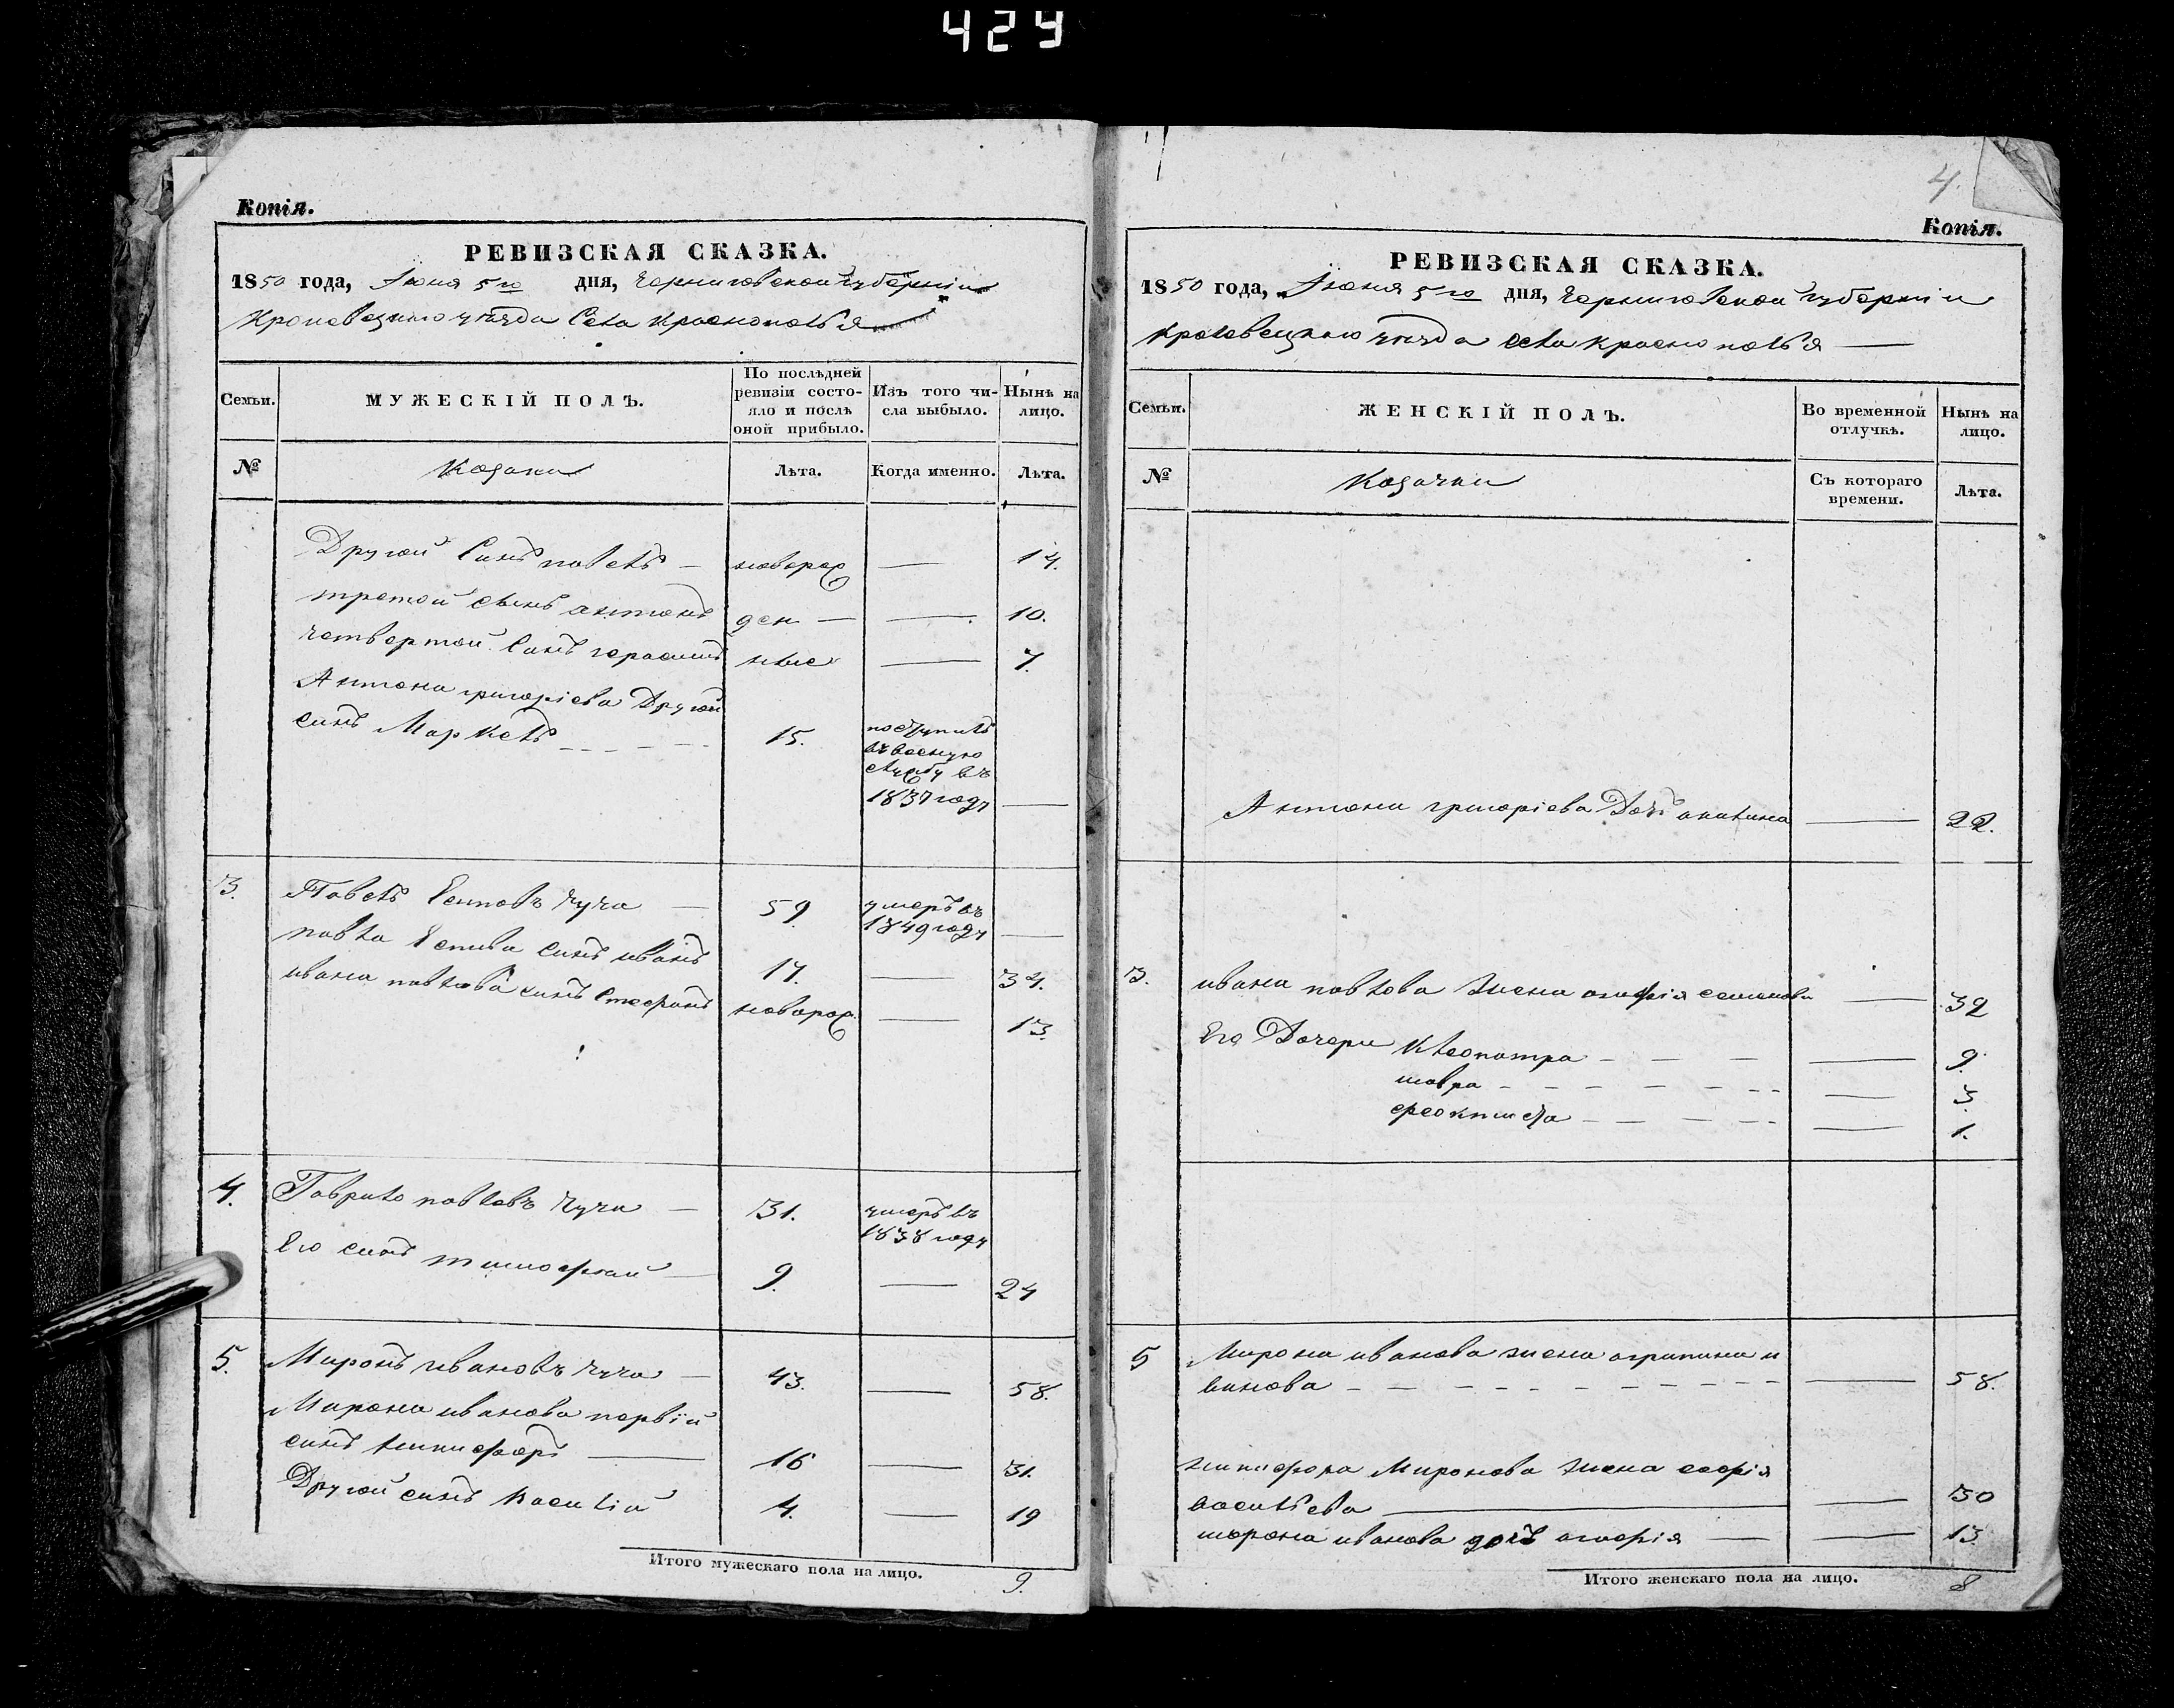 429
Копія.
РЕВИЗСКАЯ СКАЗКА.
1850 года, Июня 5го дня, Черниговской губерніи
Кролевецкаго уѣзда Села Краснополья
Семьи.
МУЖЕСКІЙ ПОЛЪ.
По послѣдней ревизіи состо-
яло и послѣ оной прибыло.
Изъ того чи-
сла выбыло.
Нынѣ на лицо.
№
Козаки
Лѣта.
Когда именно.
Лѣта.
Другой Синъ павелъ — новорож — 14.
третой сынъ антонъ ден — — 10.
четвертой Синъ герасимъ ные — 7.
Антона григоріева Другой
синъ Маркелъ 15. поступилъ
въ военную
службу въ
1837 году —
3. Павелъ Есиповъ Чуча — 59. умеръ въ
1849 году —
павла Есипова синъ иванъ 17. — 34.
ивана павлова синъ Стефанъ новорож. — 13.
4. Гаврило павловъ Чуча — 31. умеръ въ
1838 году
Его синъ тимофей — 9. — 24
5. Миронъ ивановъ Чуча — 43. — 58.
Мирона иванова первій
синъ никифоръ — 16 — 31.
Другой синъ Василій 4. — 19
Итого мужескаго пола на лицо. 9.
4.
Копія.
РЕВИЗСКАЯ СКАЗКА.
1850 года, Июня 5го дня, Черниговской губерніи
Кролевецкаго уѣзда села краснополья —
Семьи.
ЖЕНСКІЙ ПОЛЪ.
Во временной отлучкѣ.
Нынѣ на лицо.
№
Козачки
Съ котораго времени.
Лѣта.
Антона григоріева Дочъ акилина — 22.
3. ивана павлова жена агафія семенова — 32
Его Дочери Клеопатра — 9.
мавра — 3.
феоктиста — 1.
5 Мирона иванова жена агрипина и
ванова — 58.
никифора Миронова жена софія
васильева — 30
мирона иванова дочъ агафія — 13
Итого женскаго пола на лицо. 8